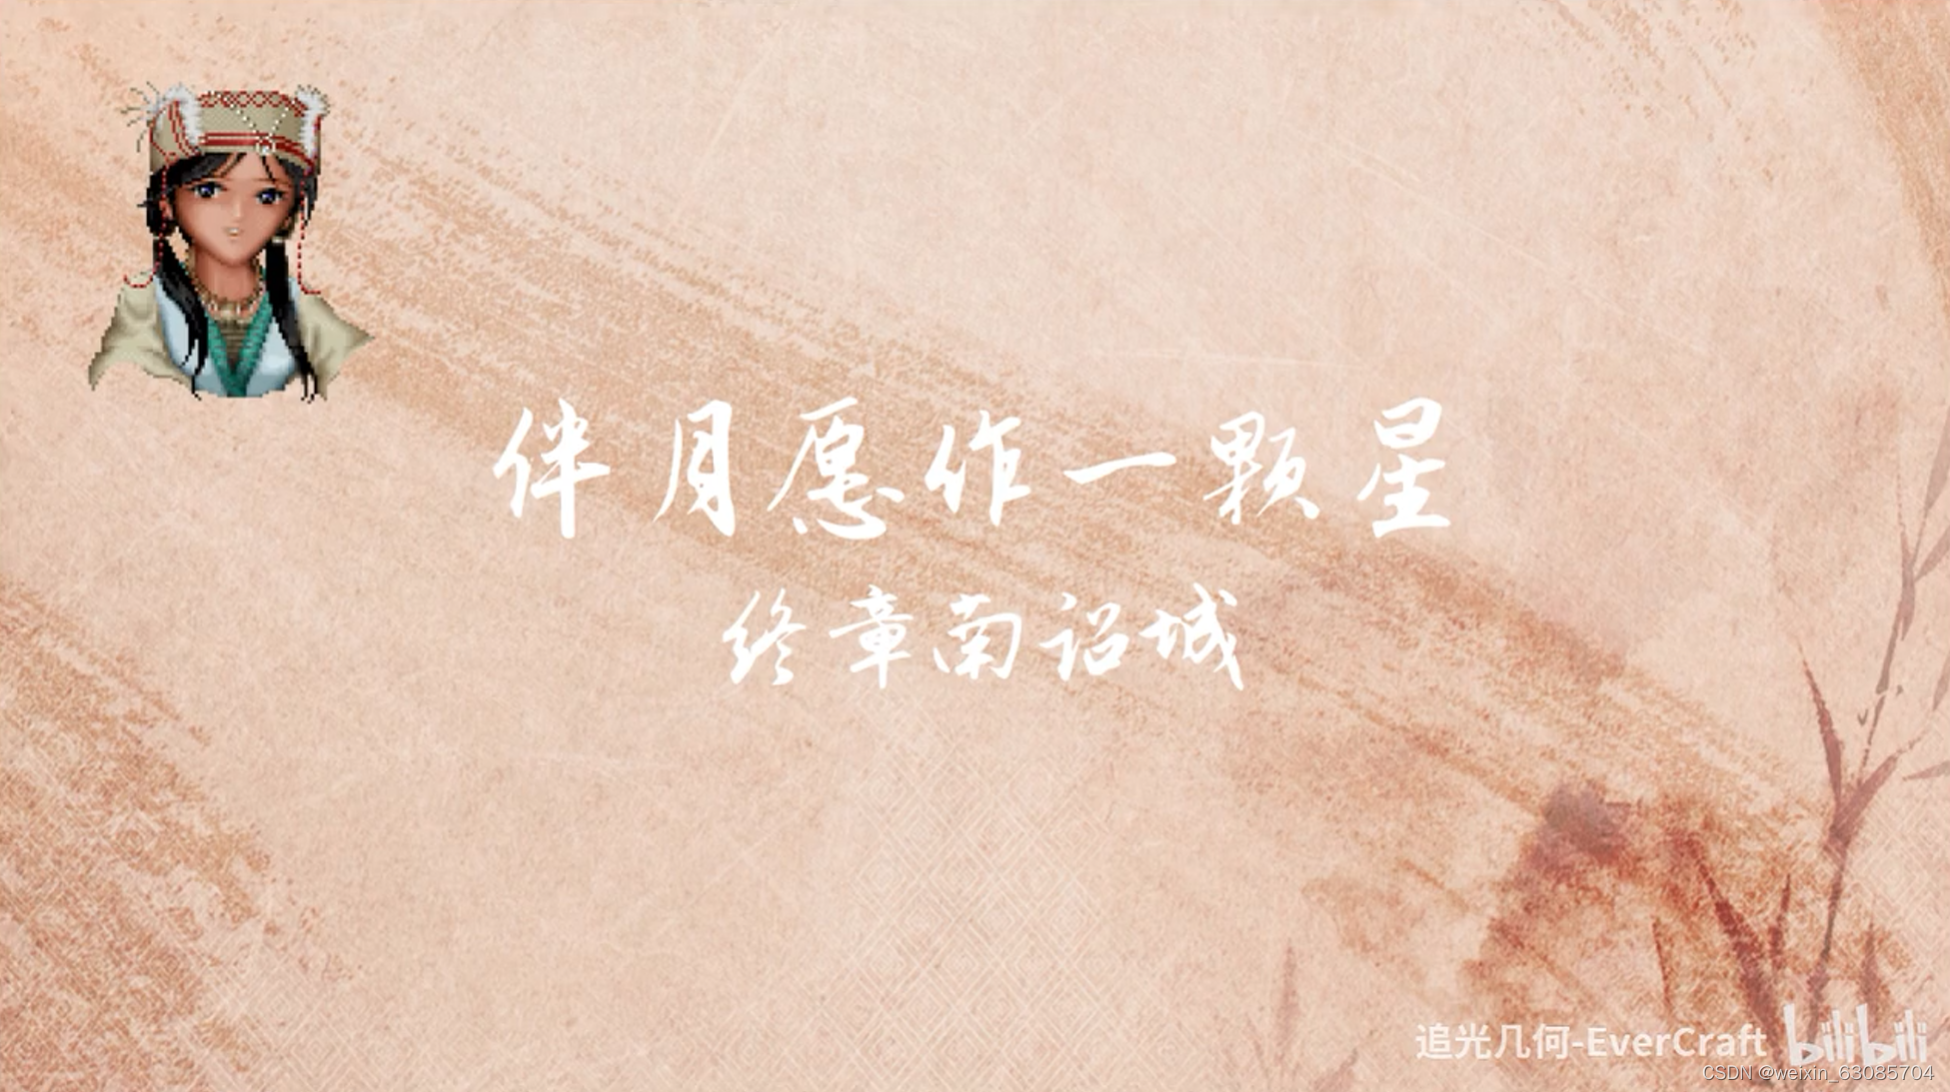 伴月愿作一颗星
终章南诏城
追光几何-EverCraft bilibili
CSDN @weixin_63085704